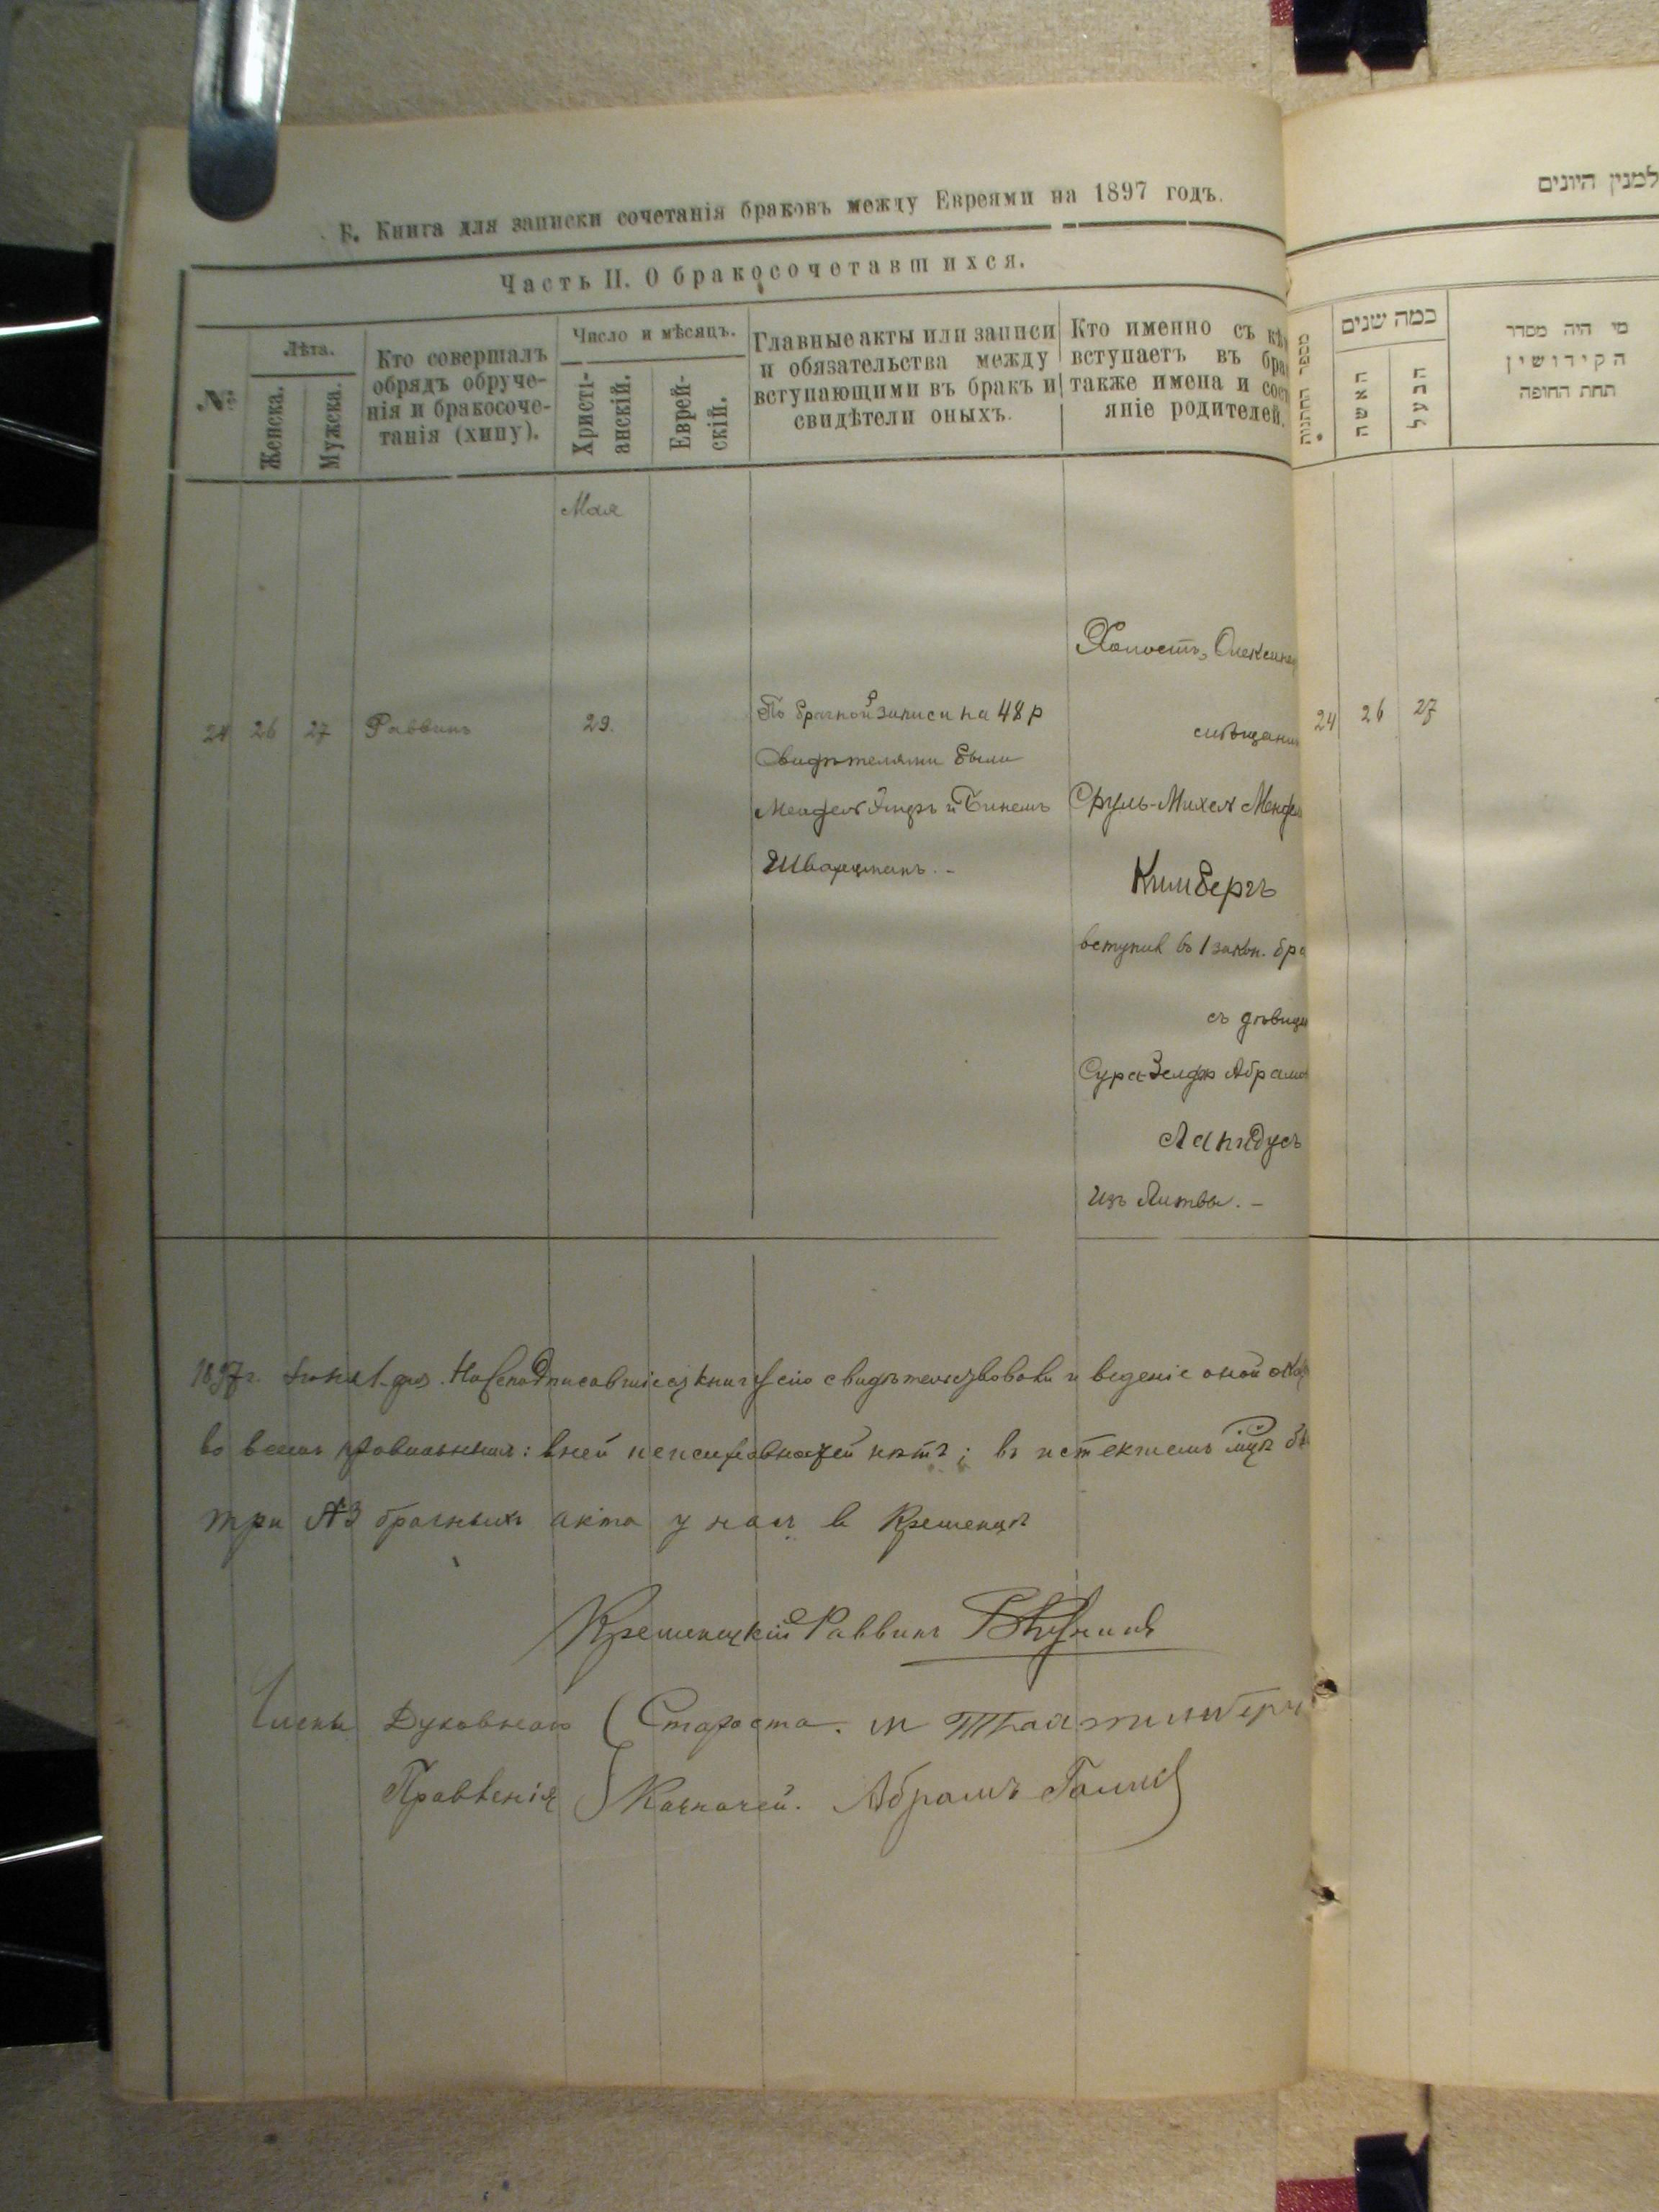 В. Книга для записки сочетанія браковъ между Евреями на 1897 годъ.
למנין היונים
Часть II. О бракосочетавшихся.
№
Лѣта.
Женска.
Мужска.
Кто совершалъ
обрядъ обруче-
нія и бракосоче-
танія (хипу).
Число и мѣсяцъ.
Христі-
анскій.
Еврей-
скій.
Главные акты или записи
и обязательства между
вступающими въ бракъ и
свидѣтели оныхъ.
Кто именно съ кѣ
вступаетъ въ бра
также имена и сос
яніе родителей.
מספר החתונות
כמה שנים
האשה
הבעל
מי היה מסדר
הקידושין
תחת החופה
Мая
24 26 27 Раввинъ 29.
По брачной записи на 48 р
Свидѣтелями были
Мендель и Бинемъ
Шварцманъ. -
Холостъ, Олексинец
мѣщанин
Сруль-Михел Менде
Кимбергъ
вступил въ 1 закон. бра
съ дѣвице
Сура-Зелда Абрамо
Лапидусъ
Изъ Литвы. -
24 26 27
1897 г. Іюня 1 дня. книгу сію свидѣтельствовали и веденіе оной ока
во всемъ правильнымъ: в ней неисправностей нѣтъ; въ истекшемъ мцѣ бы
три №3 брачныхъ акта у нас в Кременцѣ
Кременецкій Раввинъ
Члены Духовнаго ( Староста. М
Правленія Казначей. Абрамъ